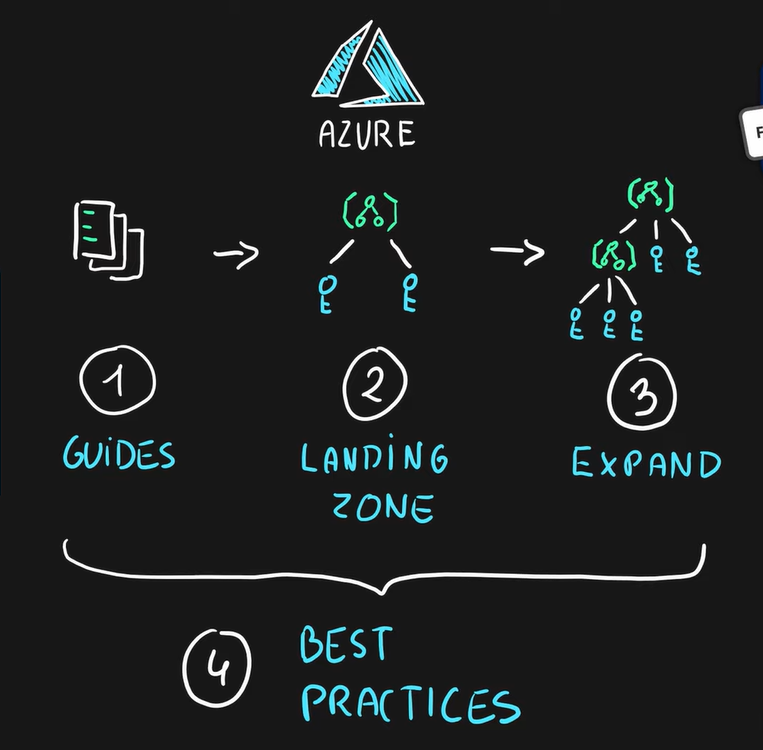 AZURE
1
2
3
GUIDES
LANDING
ZONE
EXPAND
4
BEST
PRACTICES
F